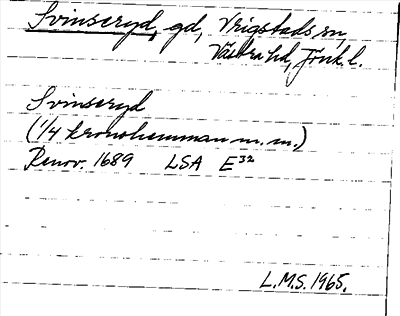 Svinseryd, gd, Vrigstads sn,
Västra hd, Jönk. l.
Svinseryd
(1/4 kronohemman m.m.)
Renov. 1689 LSA E³²
L.M.S. 1965.